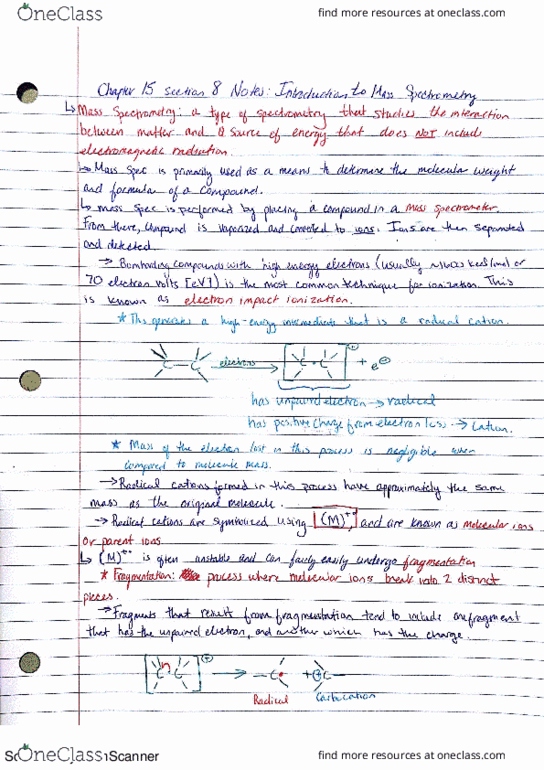 OneClass
find more resources at oneclass.com
Chapter 15 section 8 Notes: Introduction to Mass Spectrometry
↳ Mass Spectrometry: a type of spectrometry that studies the interaction
between matter and a source of energy that does NOT include
electromagnetic radiation.
↳ Mass Spec is primarily used as a means to determine the molecular weight
and formular of a compound.
↳ mass spec is performed by placing a compound in a mass spectrometer.
From there, compound is vaporized and converted to ions. Ions are then separated
and detected.
→ Bombarding compounds with high energy electrons (usually kcal/mol or
70 electron volts [eV]) is the most common technique for ionization. This
is known as electron impact ionization.
* This generates a high-energy intermediate that is a radical cation.
C - C electrons [C · C]⊕ + e⊖
has unpaired electron → radical
has positive charge from electron loss → cation.
* Mass of the electron lost in this process is negligible when
compared to molecule mass.
→ Radical cations formed in this process have approximately the same
mass as the original molecule.
→ Radical cations are symbolized using (M)⁺•, and are known as molecular ions
or parent ions.
↳ (M)⁺• is often unstable and can fairly easily undergo fragmentation
* Fragmentation: process where molecular ions break into 2 distinct
pieces.
→ Fragments that result from fragmentation tend to include one fragment
that has the unpaired electron, and another which has the charge.
[C · C]⊕ → C• + ⊕C
Radical Carbocation
OneClass
Scanner
find more resources at oneclass.com